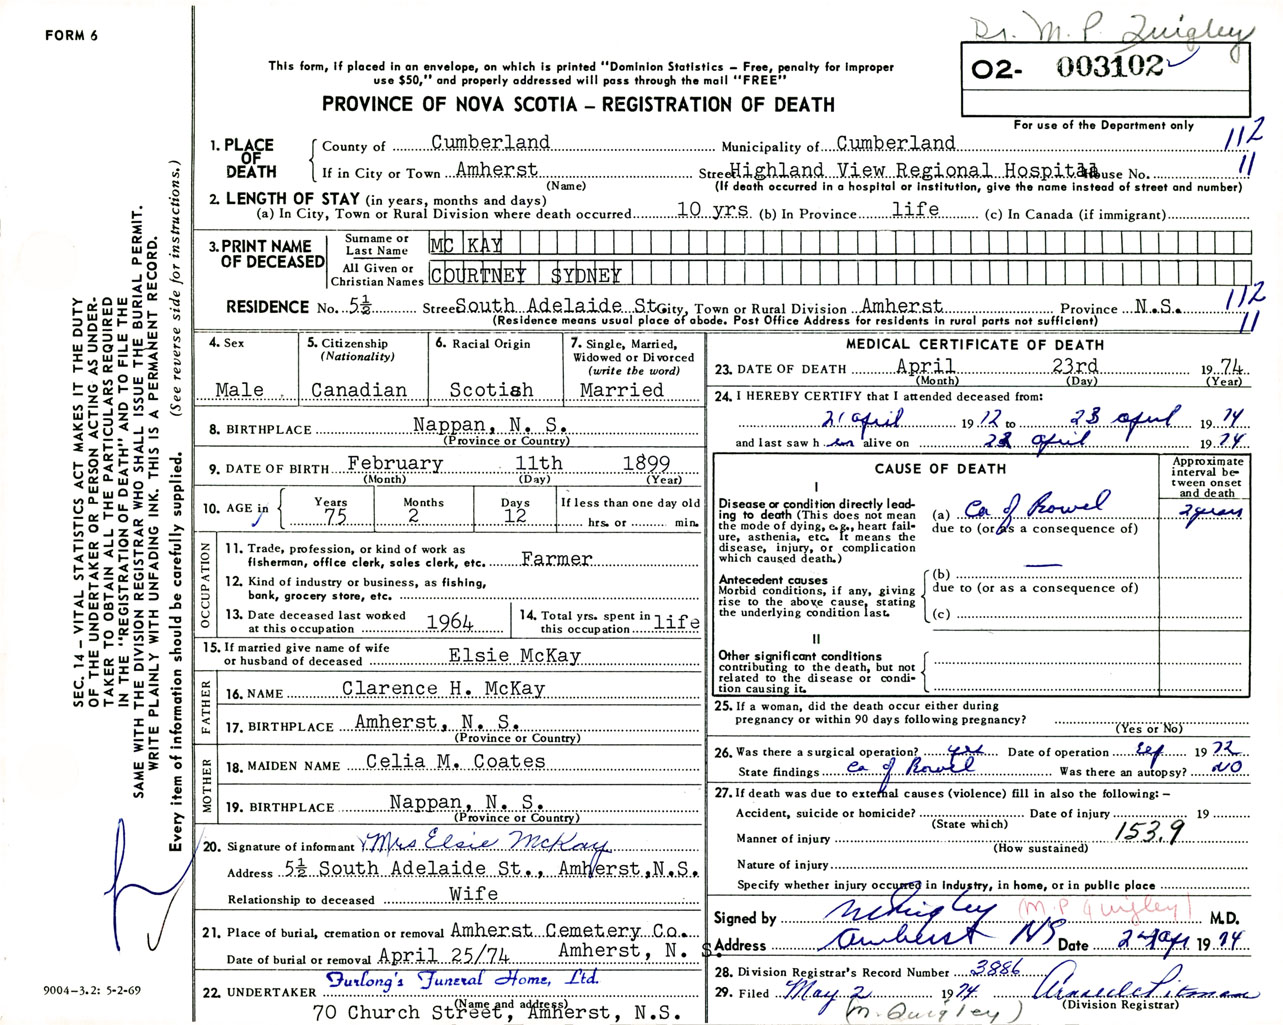 FORM 6
Dr. M. P. Quigley
This form, if placed in an envelope, on which is printed "Dominion Statistics – Free, penalty for improper
use $50," and properly addressed will pass through the mail "FREE"
O2- 003102
PROVINCE OF NOVA SCOTIA – REGISTRATION OF DEATH
For use of the Department only
1. PLACE OF DEATH
County of Cumberland Municipality of Cumberland 112
If in City or Town Amherst Street Highland View Regional Hospital House No. 11
(Name) (If death occurred in a hospital or institution, give the name instead of street and number)
2. LENGTH OF STAY (in years, months and days)
(a) In City, Town or Rural Division where death occurred 10 yrs (b) In Province life (c) In Canada (if immigrant)
3. PRINT NAME OF DECEASED
Surname or Last Name MC KAY
All Given or Christian Names COURTNEY SYDNEY
RESIDENCE No. 5½ Street South Adelaide St. City, Town or Rural Division Amherst Province N.S. 112
(Residence means usual place of abode. Post Office Address for residents in rural parts not sufficient) 11
4. Sex
Male
5. Citizenship
(Nationality)
Canadian
6. Racial Origin
Scotish
7. Single, Married,
Widowed or Divorced
(write the word)
Married
8. BIRTHPLACE Nappan, N. S.
(Province or Country)
9. DATE OF BIRTH February 11th 1899
(Month) (Day) (Year)
10. AGE in Years 75 Months 2 Days 12 If less than one day old
hrs. or min.
OCCUPATION
11. Trade, profession, or kind of work as
fisherman, office clerk, sales clerk, etc. Farmer
12. Kind of industry or business, as fishing,
bank, grocery store, etc.
13. Date deceased last worked
at this occupation 1964
14. Total yrs. spent in
this occupation life
15. If married give name of wife
or husband of deceased Elsie McKay
FATHER
16. NAME Clarence H. McKay
17. BIRTHPLACE Amherst, N. S.
(Province or Country)
MOTHER
18. MAIDEN NAME Celia M. Coates
19. BIRTHPLACE Nappan, N. S.
(Province or Country)
20. Signature of informant Mrs Elsie McKay
Address 5½ South Adelaide St., Amherst, N.S.
Relationship to deceased Wife
21. Place of burial, cremation or removal Amherst Cemetery Co.
Date of burial or removal April 25/74 Amherst, N. S.
22. UNDERTAKER Furlong's Funeral Home, Ltd.
(Name and address)
70 Church Street, Amherst, N.S.
MEDICAL CERTIFICATE OF DEATH
23. DATE OF DEATH April 23rd 19 74
(Month) (Day) (Year)
24. I HEREBY CERTIFY that I attended deceased from:
21 April 19 72 to 23 April 19 74
and last saw h im alive on 23 April 19 74
CAUSE OF DEATH
Approximate
interval be-
tween onset
and death
I
Disease or condition directly lead-
ing to death (This does not mean
the mode of dying, e.g., heart fail-
ure, asthenia, etc. It means the
disease, injury, or complication
which caused death.)
(a) Ca of Bowel 2 years
due to (or as a consequence of)
Antecedent causes
Morbid conditions, if any, giving
rise to the above cause, stating
the underlying condition last.
(b)
due to (or as a consequence of)
(c)
II
Other significant conditions
contributing to the death, but not
related to the disease or condi-
tion causing it.
25. If a woman, did the death occur either during
pregnancy or within 90 days following pregnancy?
(Yes or No)
26. Was there a surgical operation? yes Date of operation Sep 19 72
State findings Ca of Bowel Was there an autopsy? NO
27. If death was due to external causes (violence) fill in also the following: –
Accident, suicide or homicide? Date of injury 19
(State which)
Manner of injury 153.9
(How sustained)
Nature of injury
Specify whether injury occurred in Industry, in home, or in public place
Signed by M P Quigley (M. P. Quigley) M.D.
Address Amherst NS Date 24 Apr 19 74
28. Division Registrar's Record Number 3886
29. Filed May 2 19 74
(Division Registrar)
(M. Quigley)
SEC. 14 – VITAL STATISTICS ACT MAKES IT THE DUTY
OF THE UNDERTAKER OR PERSON ACTING AS UNDER-
TAKER TO OBTAIN ALL THE PARTICULARS REQUIRED
IN THE "REGISTRATION OF DEATH" AND TO FILE THE
SAME WITH THE DIVISION REGISTRAR WHO SHALL ISSUE THE BURIAL PERMIT.
WRITE PLAINLY WITH UNFADING INK. THIS IS A PERMANENT RECORD.
Every item of information should be carefully supplied. (See reverse side for instructions.)
9004-3.2: 5-2-69